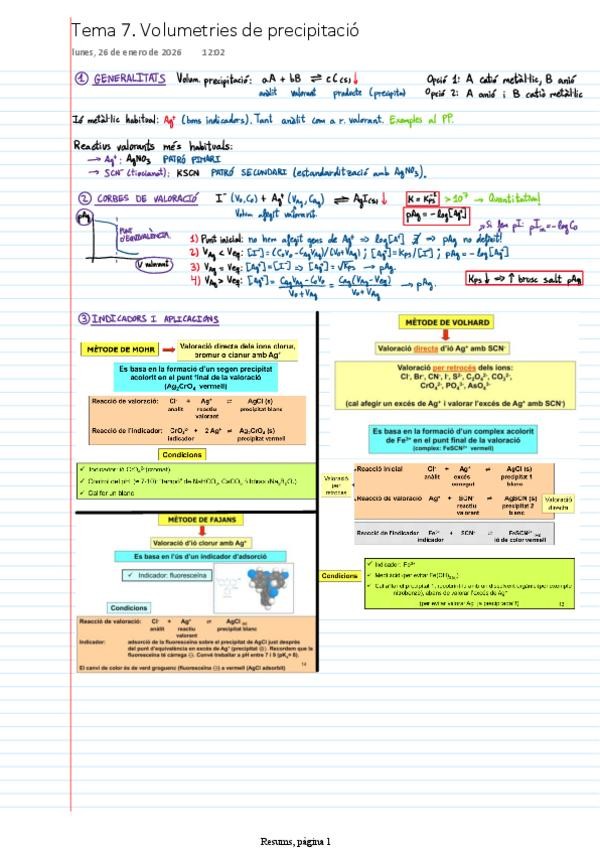 Tema 7. Volumetries de precipitació
lunes, 26 de enero de 2026 12:02
① GENERALITATS Volum. precipitació: aA + bB ⇌ cC(s)↓
analit valorant producte (precipita)
Opció 1: A catió metàl·lic, B anió
Opció 2: A anió i B catió metàl·lic
Ió metàl·lic habitual: Ag⁺ (bons indicadors). Tant anàlit com a r. valorant. Exemples al PP.
Reactius valorants més habituals:
→ Ag⁺: AgNO₃ PATRÓ PIMARI
→ SCN⁻ (tiocianat): KSCN PATRÓ SECUNDARI (estandardització amb AgNO₃).
② CORBES DE VALORACIÓ I⁻ (V₀,C₀) + Ag⁺ (VAg, CAg) ⇌ AgI(s)↓ K = Kps⁻¹ > 10⁷ → Quantitativa!
Volum afegit valorant.
pAg = -log[Ag⁺]
→ Si fem pI: pIin = -log C₀
pAg
PUNT D'EQUIVALÈNCIA
V valorant
1) Punt inicial: no hem afegit gens de Ag⁺ ⇒ log[A⁺] ∄ ⇒ pAg no definit!
2) VAg < Veq: [I⁻] = (C₀V₀ - CAgVAg)/(V₀+VAg) ; [Ag⁺] = Kps/[I⁻] ; pAg = -log[Ag⁺]
3) VAg = Veq: [Ag⁺] = [I⁻] ⇒ [Ag⁺] = √Kps → pAg.
4) VAg > Veq: [Ag⁺] = (CAgVAg - C₀V₀)/(V₀+VAg) = CAg(VAg - Veq)/(V₀+VAg) → pAg.
Kps ↓ ⇒ ↑ brusc salt pAg
③ INDICADORS I APLICACIONS
MÈTODE DE MOHR
Valoració directa dels ions clorur, bromur o cianur amb Ag⁺
Es basa en la formació d'un segon precipitat
acolorit en el punt final de la valoració
(Ag₂CrO₄ vermell)
Reacció de valoració: Cl⁻ + Ag⁺ ⇌ AgCl (s)
anàlit reactiu valorant precipitat blanc
Reacció de l'indicador: CrO₄²⁻ + 2 Ag⁺ ⇌ Ag₂CrO₄ (s)
indicador precipitat vermell
Condicions
✓ Indicador: ió CrO₄²⁻ (cromat)
✓ Control del pH
✓ Cal fer un blanc
MÈTODE DE FAJANS
Valoració d'ió clorur amb Ag⁺
Es basa en l'ús d'un indicador d'adsorció
✓ Indicador: fluoresceïna
Condicions
Reacció de valoració: Cl⁻ + Ag⁺ ⇌ AgCl (s)
anàlit reactiu valorant precipitat blanc
Indicador: adsorció de la fluoresceïna sobre el precipitat de AgCl just després
del punt d'equivalència en excés de Ag⁺ (precipitat ⊕). Recordem que la
fluoresceïna té càrrega ⊖. Convé treballar a pH entre 7 i 9
El canvi de color és de verd groguenc (fluoresceïna ⊖) a vermell (AgCl adsorbit)
14
MÈTODE DE VOLHARD
Valoració directa d'ió Ag⁺ amb SCN⁻
Valoració per retrocés dels ions:
Cl⁻, Br⁻, CN⁻, I⁻, S²⁻, C₂O₄²⁻, CO₃²⁻,
CrO₄²⁻, PO₄³⁻, AsO₄³⁻
(cal afegir un excés de Ag⁺ i valorar l'excés de Ag⁺ amb SCN⁻)
Es basa en la formació d'un complex acolorit
de Fe³⁺ en el punt final de la valoració
(complex: FeSCN²⁺ vermell)
Valoració per retrocés
Reacció inicial Cl⁻ + Ag⁺ ⇌ AgCl (s)
anàlit excés conegut precipitat 1 blanc
Reacció de valoració Ag⁺ + SCN⁻ ⇌ AgSCN (s)
reactiu valorant precipitat 2 blanc
Valoració directa
Reacció de l'indicador Fe³⁺ + SCN⁻ ⇌ FeSCN²⁺
indicador ió de color vermell
Condicions
✓ Indicador: Fe³⁺
✓ Medi àcid (per evitar Fe(OH)₃(s))
✓ abans de valorar l'excés de Ag⁺
13
Resums, página 1